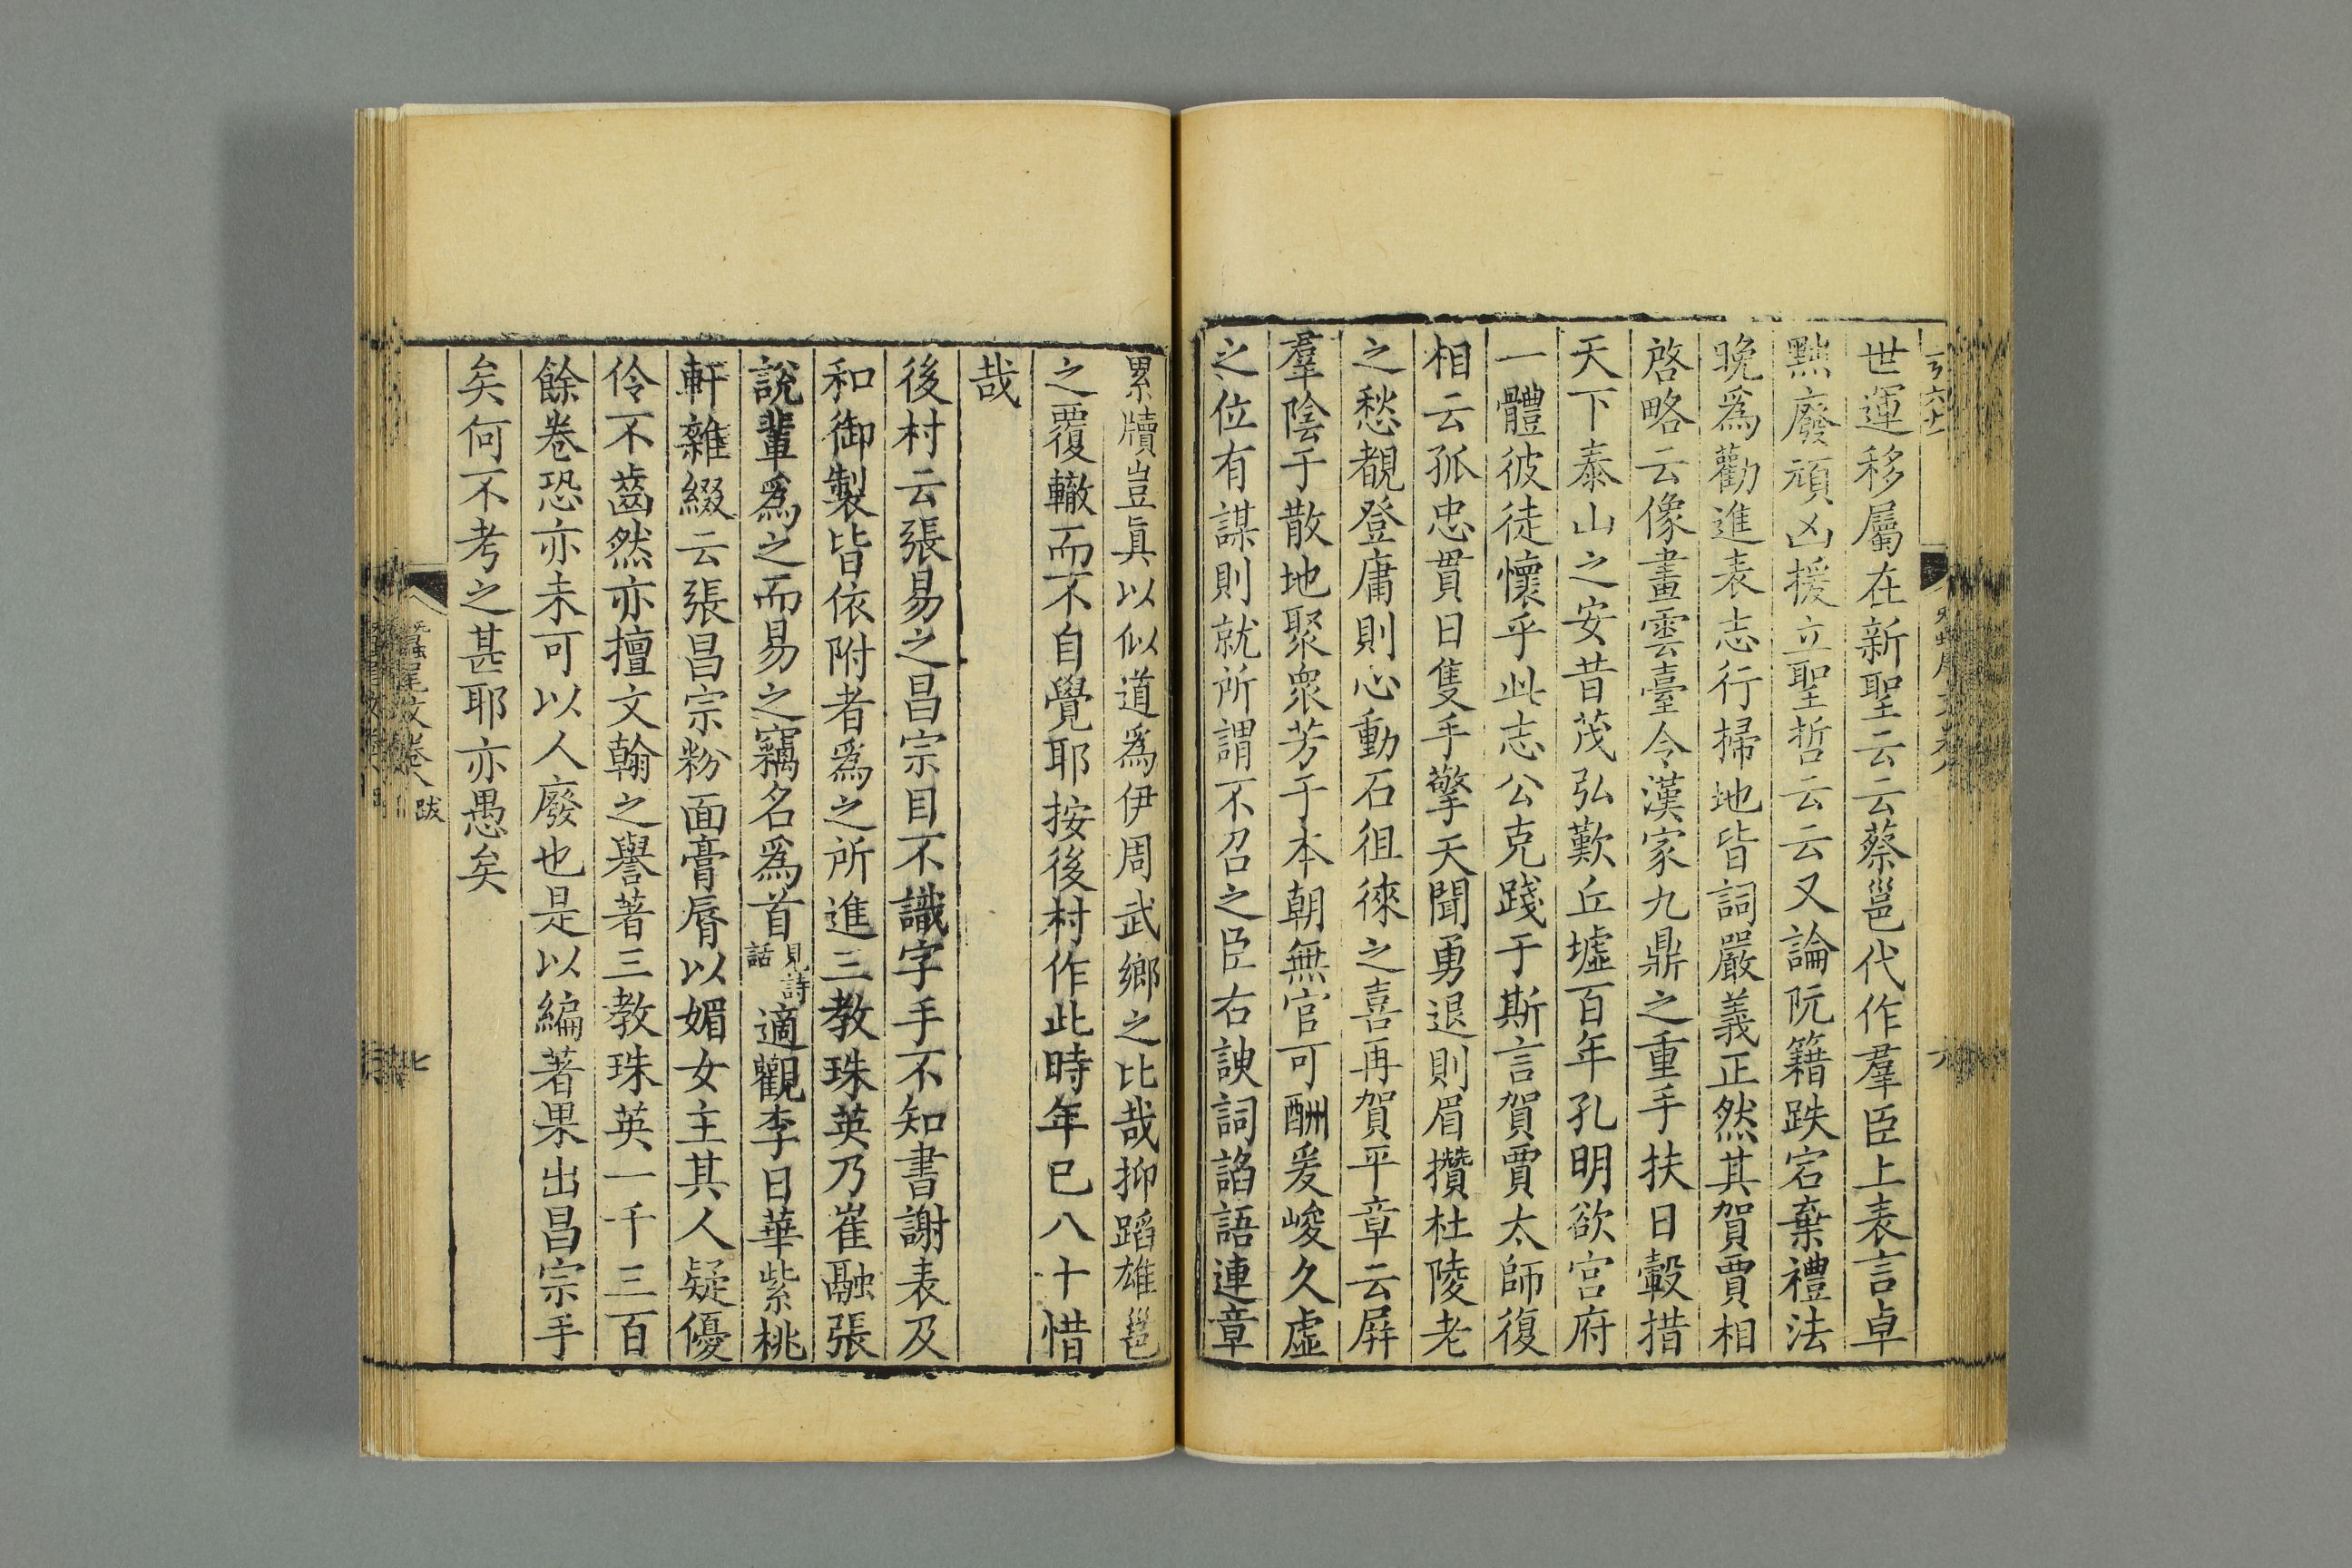 世運移屬在新聖云云蔡邕代作羣臣上表言卓
黜廢頑凶援立聖哲云云又論阮籍跌宕棄禮法
晚爲勸進表志行掃地皆詞嚴義正然其賀賈相
啓略云像畫雲臺令漢家九鼎之重手扶日轂措
天下泰山之安昔茂弘歎丘墟百年孔明欲宫府
一體彼徒懷乎此志公克踐于斯言賀賈太師復
相云孤忠貫日隻手擎天聞勇退則眉攢杜陵老
之愁覩登庸則心動石徂徠之喜再賀平章云屏
羣陰于散地聚衆芳于本朝無官可酬爰峻久虛
之位有謀則就所謂不召之臣右諛詞謟語連章
累牘豈眞以似道爲伊周武鄉之比哉抑蹈雄邕
之覆轍而不自覺耶按後村作此時年已八十惜
哉
後村云張易之昌宗目不識字手不知書謝表及
和御製皆依附者爲之所進三教珠英乃崔融張
說輩爲之而易之竊名爲首見詩話適觀李日華紫桃
軒雜綴云張昌宗粉面膏脣以媚女主其人疑優
伶不齒然亦擅文翰之譽著三教珠英一千三百
餘卷恐亦未可以人廢也是以編著果出昌宗手
矣何不考之甚耶亦愚矣
蠶尾文卷八 跋
七